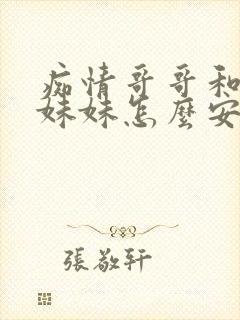 痴情哥哥和
妹妹怎麼安
張敬轩